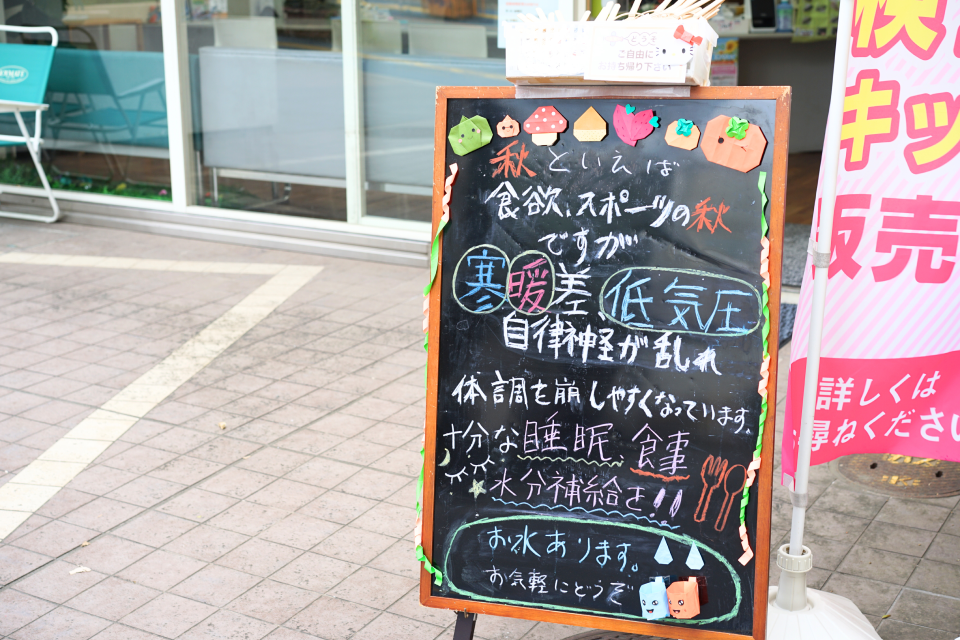 ご自由に
お持ち帰り下さい
秋といえば
食欲、スポーツの秋
ですが
寒暖差、低気圧
自律神経が乱れ
体調を崩しやすくなっています。
十分な睡眠、食事
水分補給を!!
お水あります。
お気軽にどうぞ
検
キッ
販売
詳しくは
尋ねください